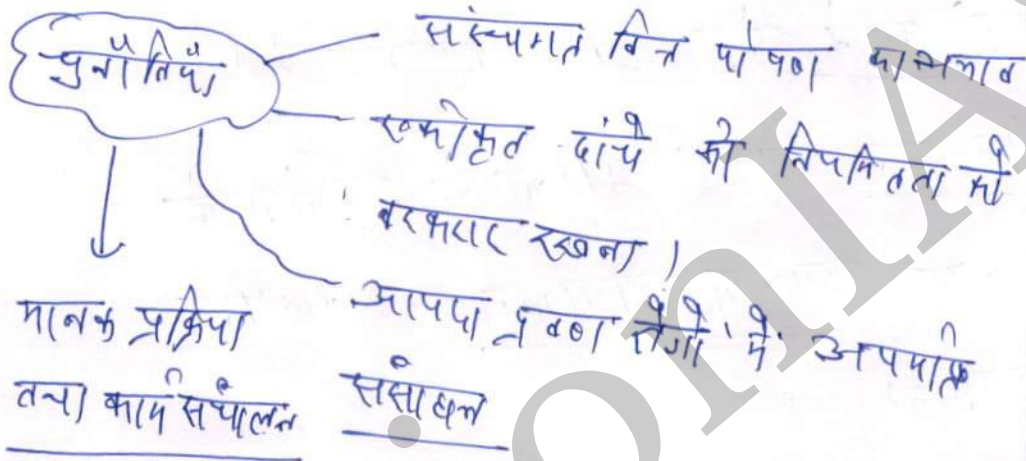 चुनौतियाँ
संस्थागत वित्त पोषण का अभाव
एकीकृत ढांचे की नियमितता को
बरकरार रखना।
आपदा प्रवण क्षेत्रों में अपर्याप्त
संसाधन
मानक प्रक्रिया
तथा कार्य संचालन